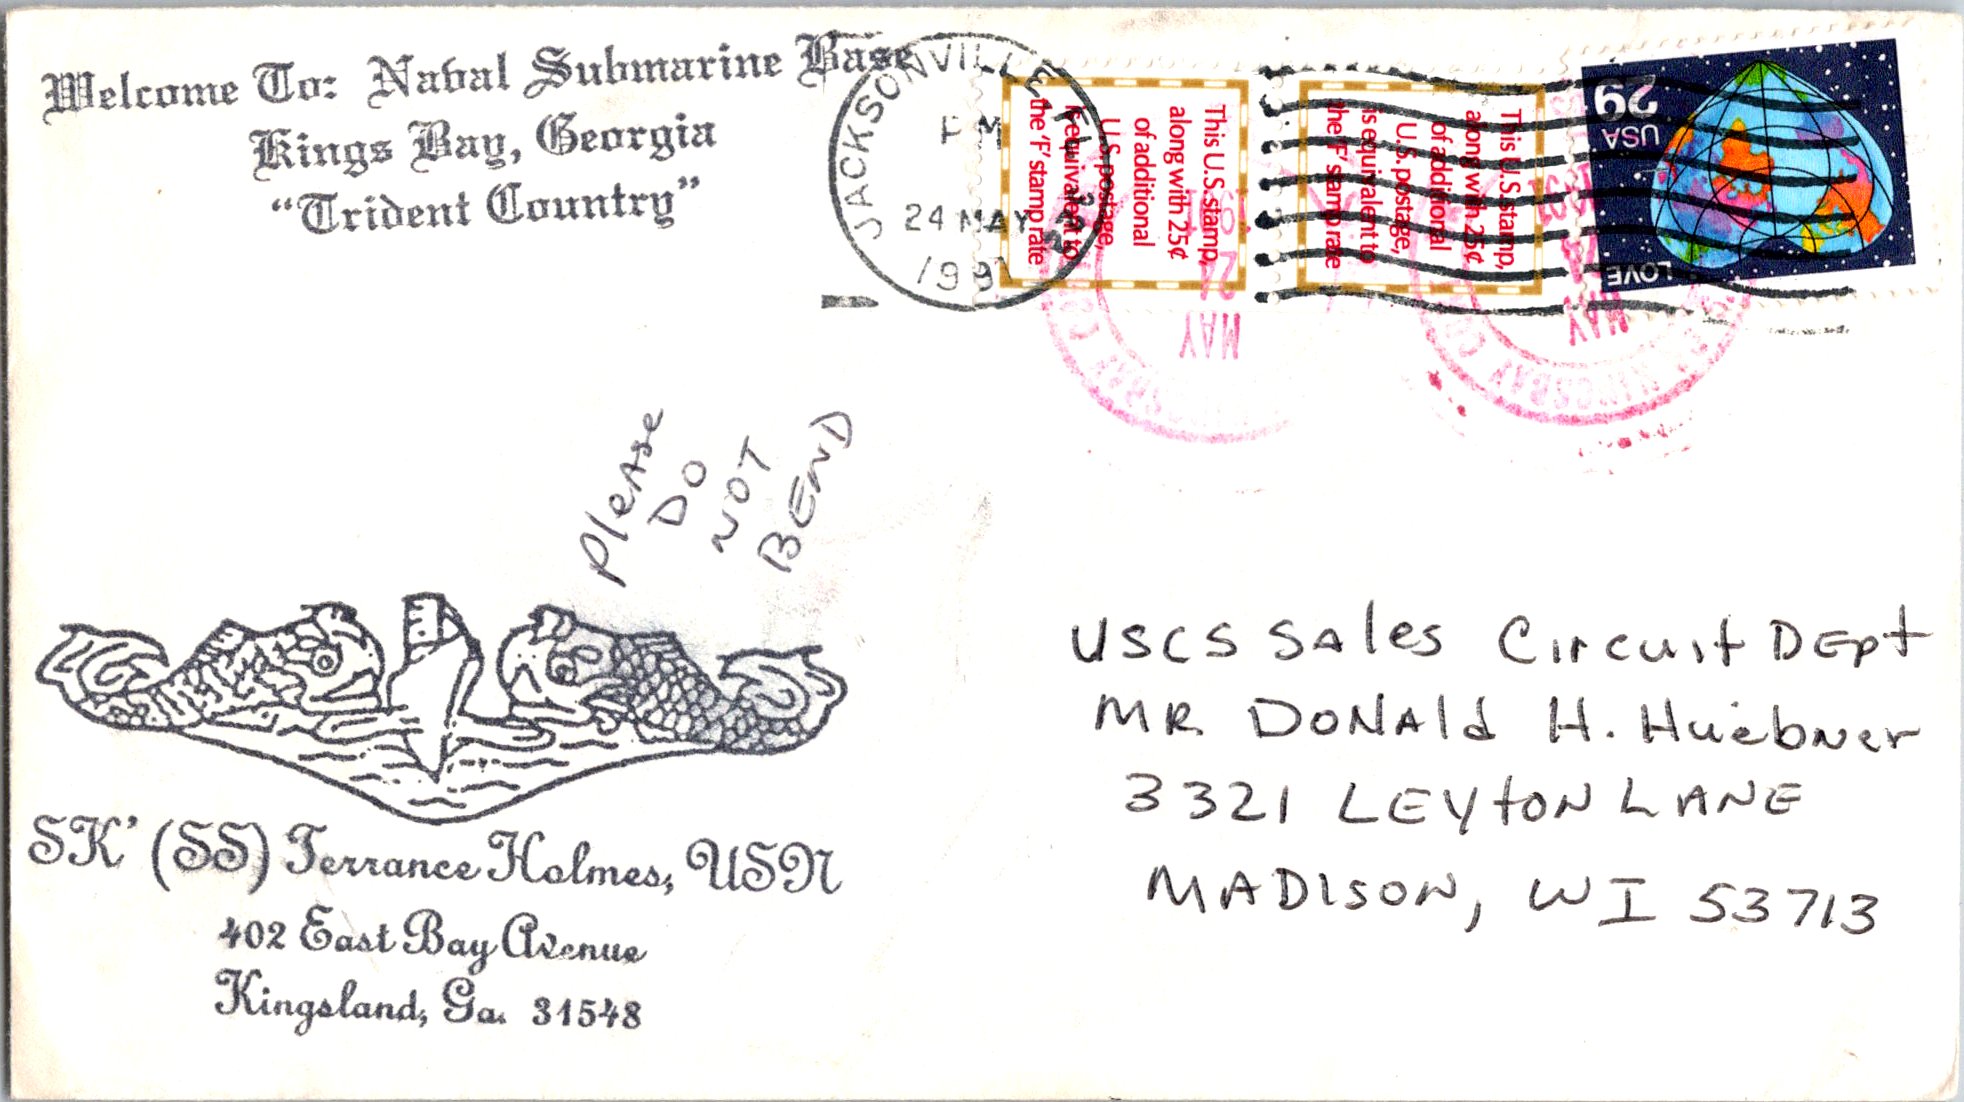 Welcome To: Naval Submarine Base
Kings Bay, Georgia
"Trident Country"
JACKSONVILLE, FL
PM
24 MAY
199
This U.S. stamp,
along with 25¢
of additional
U.S. postage,
is equivalent to
the 'F' stamp rate
This U.S. stamp,
along with 25¢
of additional
U.S. postage,
is equivalent to
the 'F' stamp rate
29
USA
LOVE
MAY
24
1991
MAY
24
1991
Please
DO
NOT
BEND
USCS SAles Circuit DEpt
MR DONAld H. Huebner
3321 LEYtON LANE
MADISON, WI 53713
SK' (SS) Terrance Holmes, USN
402 East Bay Avenue
Kingsland, Ga. 31548